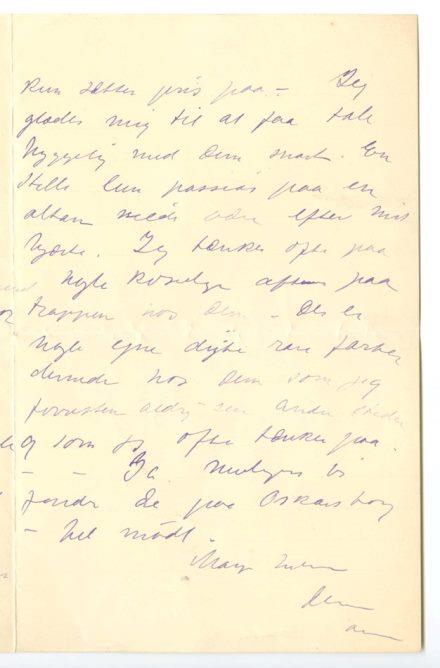 kun sætter pris paa. – Jeg
glæder mig til at faa tale
hyggelig med Dem snart. En
stille lun passiar paa en
altan vilde være efter mit
hjerte. Jeg tænker ofte paa
nogle koselige aftener paa
trappen hos Dem – Der er
nogle egne dybe rare farver
dernede hos Dem som jeg
forresten aldrig ser andre steder
og som jeg ofte tænker paa.
– – Ja muligens vi
De paa Oskarsborg
– Vel mødt.
Mange